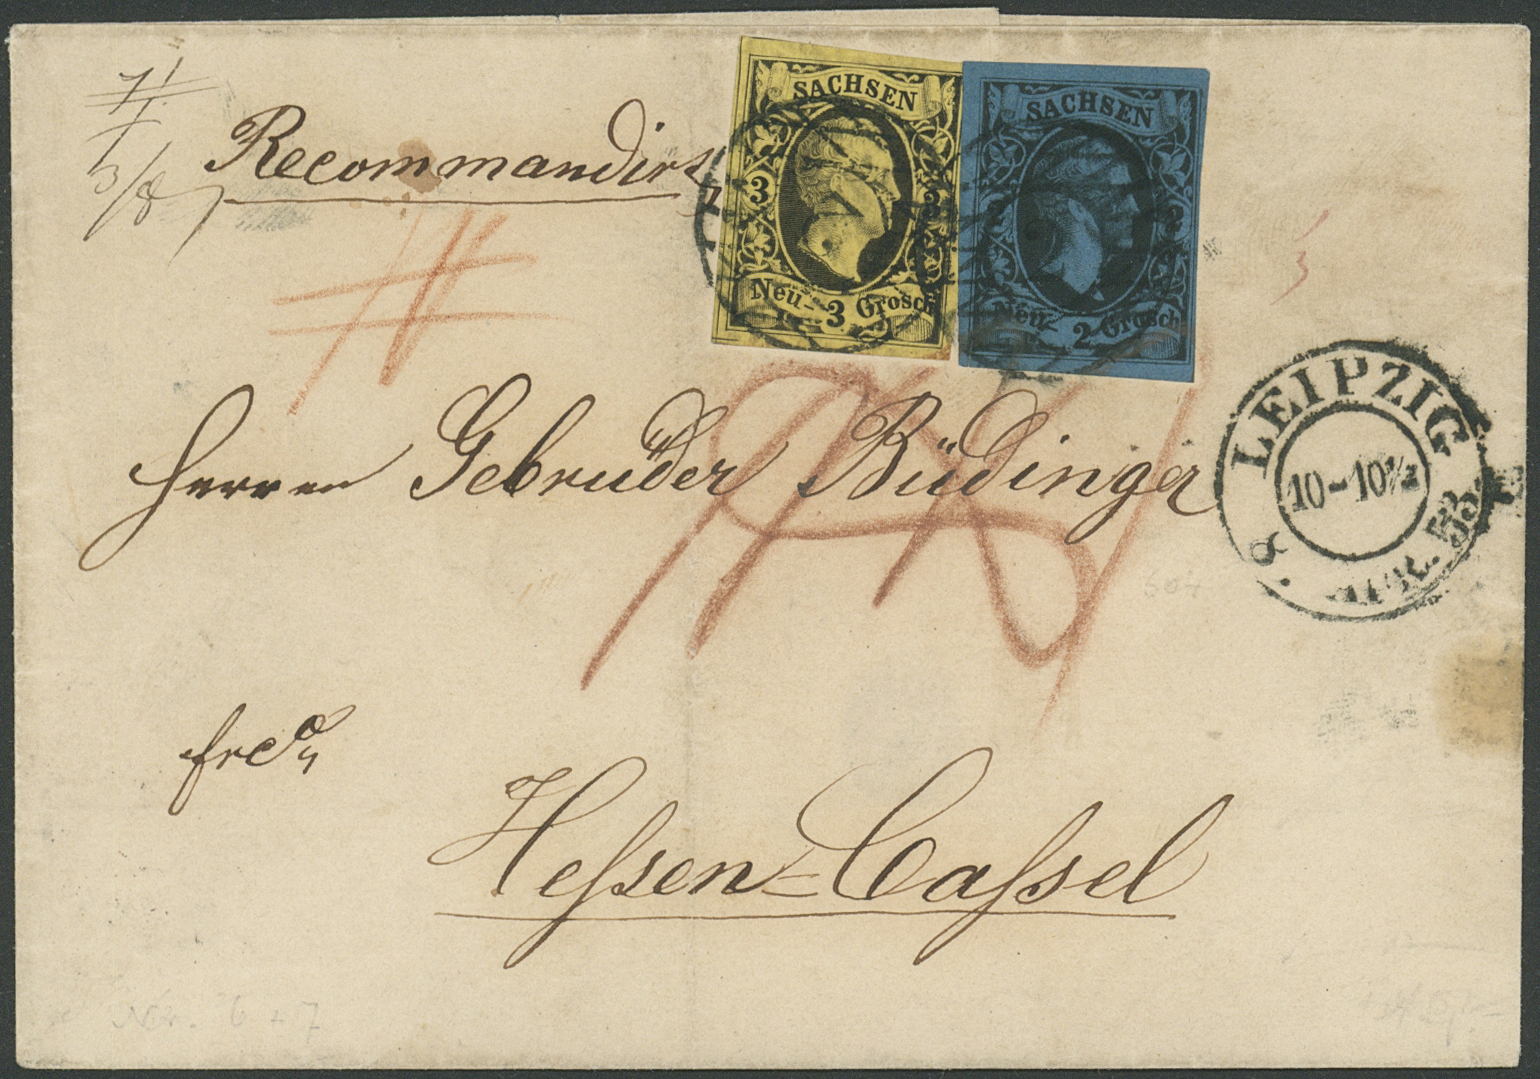 Recommandirt
SACHSEN
3
3
Neu- 3 Grosch
SACHSEN
2
2
Neu- 2 Grosch
LEIPZIG
10-10½
8 APR. 53
Herren Gebrüder Büdinger
frco
Heſsen=Caſsel
Nr. 6 + 7